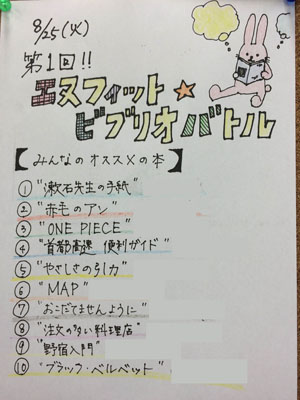 8/25(火)
第1回!!
エヌフィット★
ビブリオバトル
【みんなのオススメの本】
① "漱石先生の手紙"
② "赤毛のアン"
③ "ONE PIECE"
④ "首都高速 便利ガイド"
⑤ "やさしさの引力"
⑥ "MAP"
⑦ "おこだてませんように"
⑧ "注文の多い料理店"
⑨ "野宿入門"
⑩ "ブラック・ベルベット"